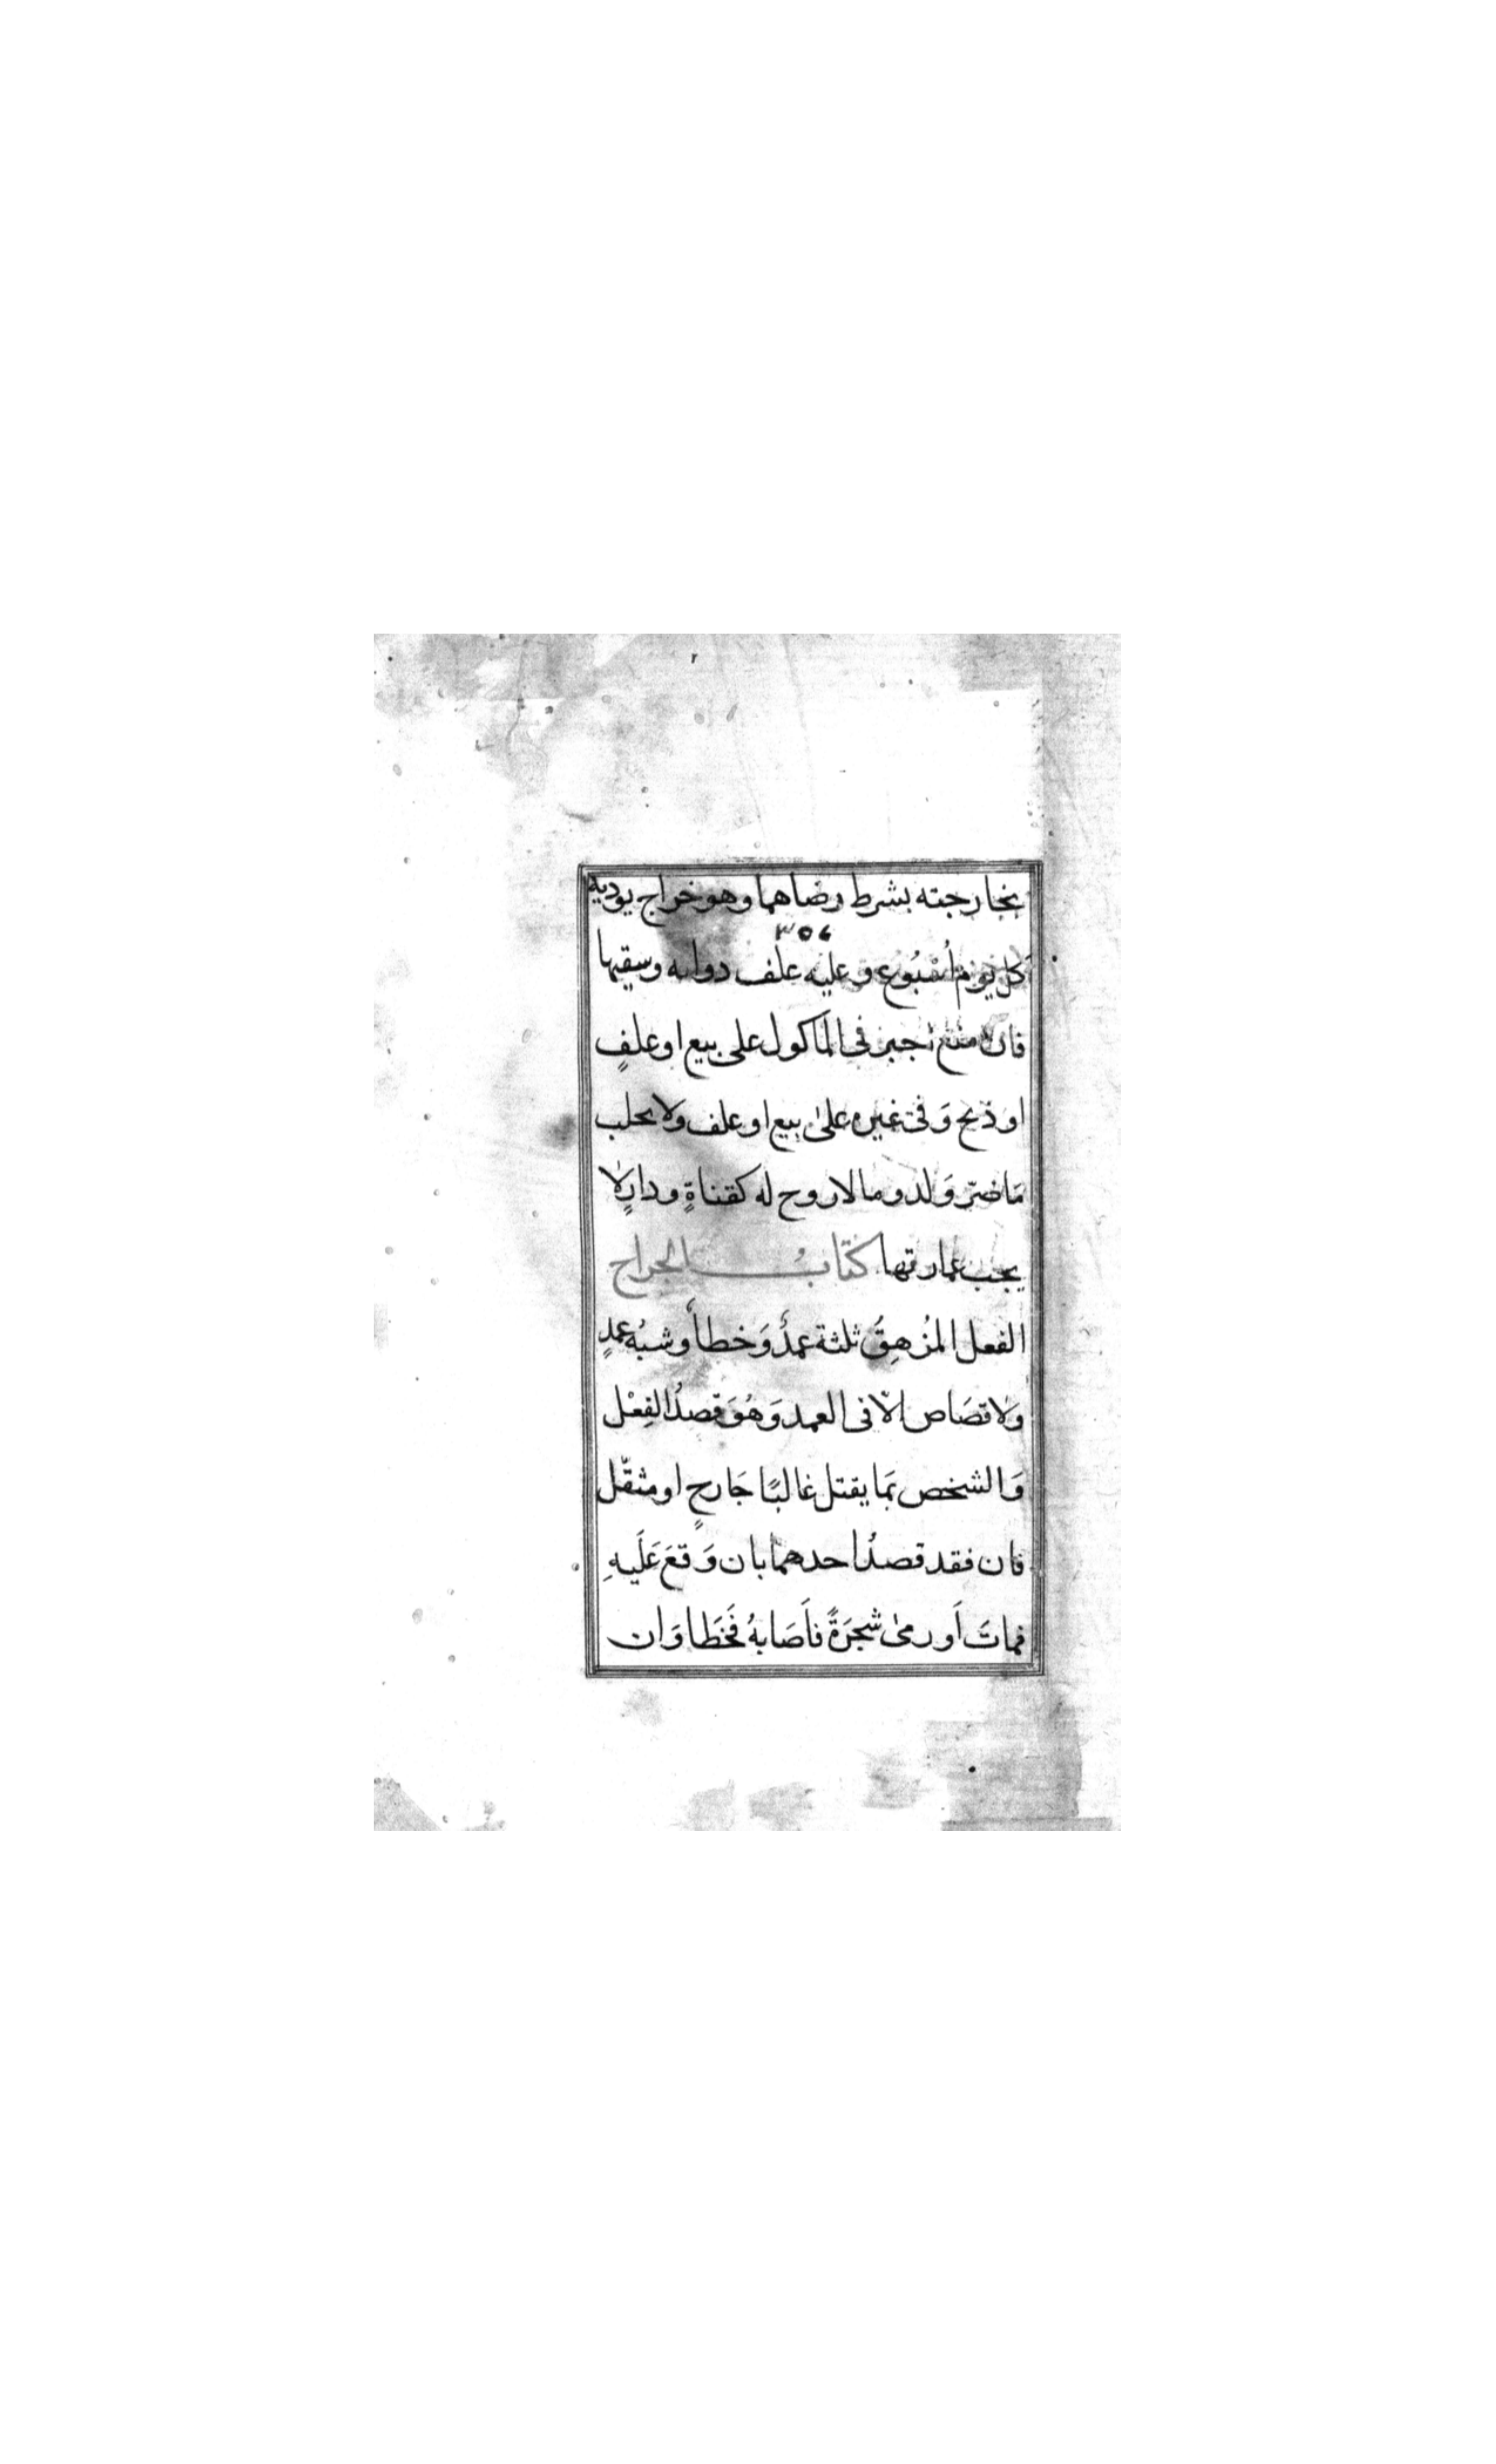 مخارجته بشرط رضاهما وهو خراج يوديه
٣٥٤
كل يوم اُسْبُوع وعليه علف دوابه وسقيها
فان امتنع اجبر فى المَاكول على بيع او علفٍ
او ذبح وَفى غيره على بيع او علف ولا يحلب
مَا ضرّ وَلد وما لا روح له كقناةٍ ودارٍ لا
يجب عمارتها كتابُ الجراح
الفعل المُزهِقُ ثلثة عمدٌ وَخطأ وشبْه عمدٍ
ولا قصَاص الاّ فى العمد وَهُوَ قصدُ الفِعْل
وَالشخص بمَا يقتل غالبًا جَارحٍ او مثقّل
فان فقد قصدُ احدهمَا بان وَقعَ عَلَيهِ
فماتَ اَو رمىٰ شجرَةً فاَصَابهُ فَخَطَا وَان